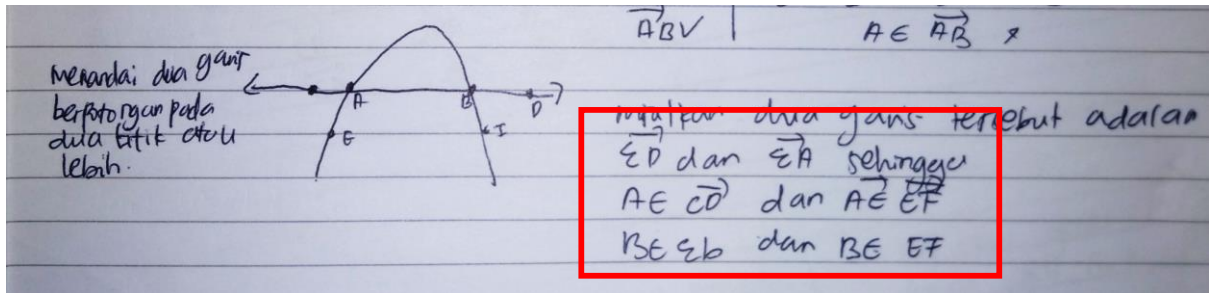 AB V | A ∈ AB x
Menandai dua garis
berpotongan pada
dua titik atau
lebih.
A B D
E I
misalkan dua garis tersebut adalah
ΣD dan ΣA sehingga
A ∈ CD dan A ∈ EF
B ∈ Σb dan B ∈ EF